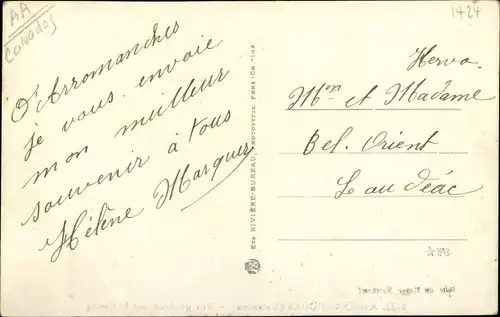 AA
Calvados
1424
D'Arromanches
je vous envoie
mon meilleur
souvenir à tous
Hélène Marquer
Ets RIVIÈRE-BUREAU, PHOTOTYPIE,
Herva
Mm et Madame
Bel. Orient
Loudéac